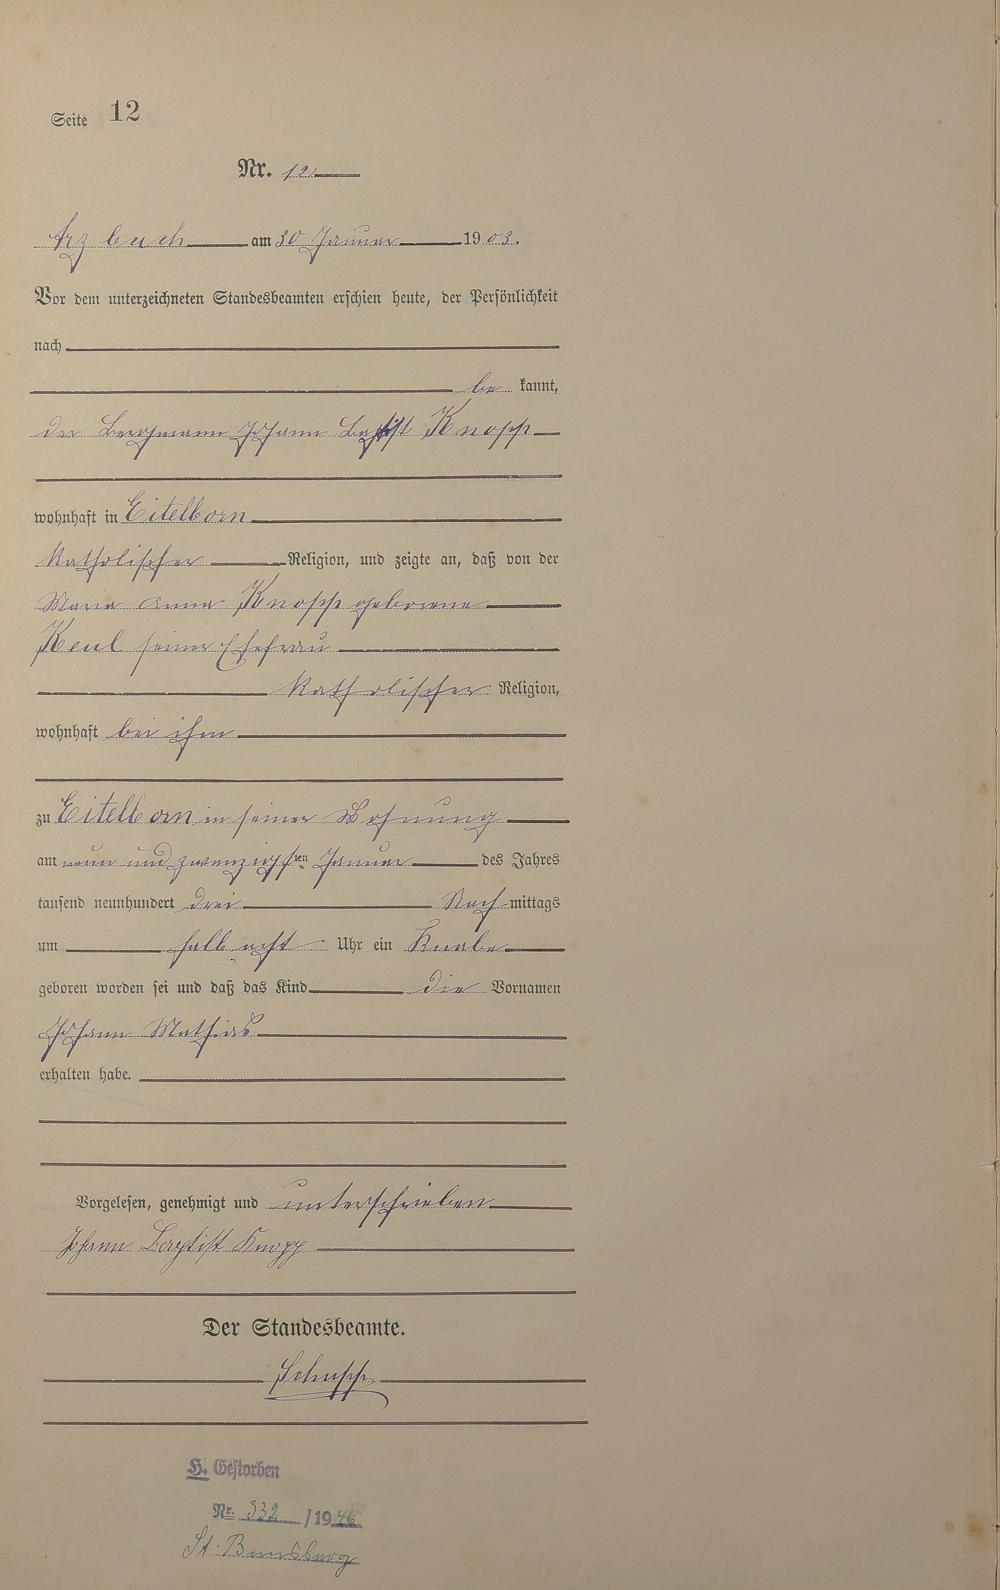 Seite 12
Nr. 12
Arzbach am 30 Januar 1903.
Vor dem unterzeichneten Standesbeamten erschien heute, der Persönlichkeit
nach
be kannt,
der Bergmann Johann Baptist Knopp
wohnhaft in Eitelborn
katholischer Religion, und zeigte an, daß von der
Maria Anna Knopp geborene
Keul seiner Ehefrau
katholischer Religion,
wohnhaft bei ihm
zu Eitelborn in seiner Wohnung
am neun und zwanzigsten Januar des Jahres
tausend neunhundert drei Nach mittags
um halb acht Uhr ein Knabe
geboren worden sei und daß das Kind die Vornamen
Johann Mathias
erhalten habe.
Vorgelesen, genehmigt und unterschrieben
Johann Baptist Knopp
Der Standesbeamte.
Schupp
H. Gestorben
Nr. 332 /1946
St.